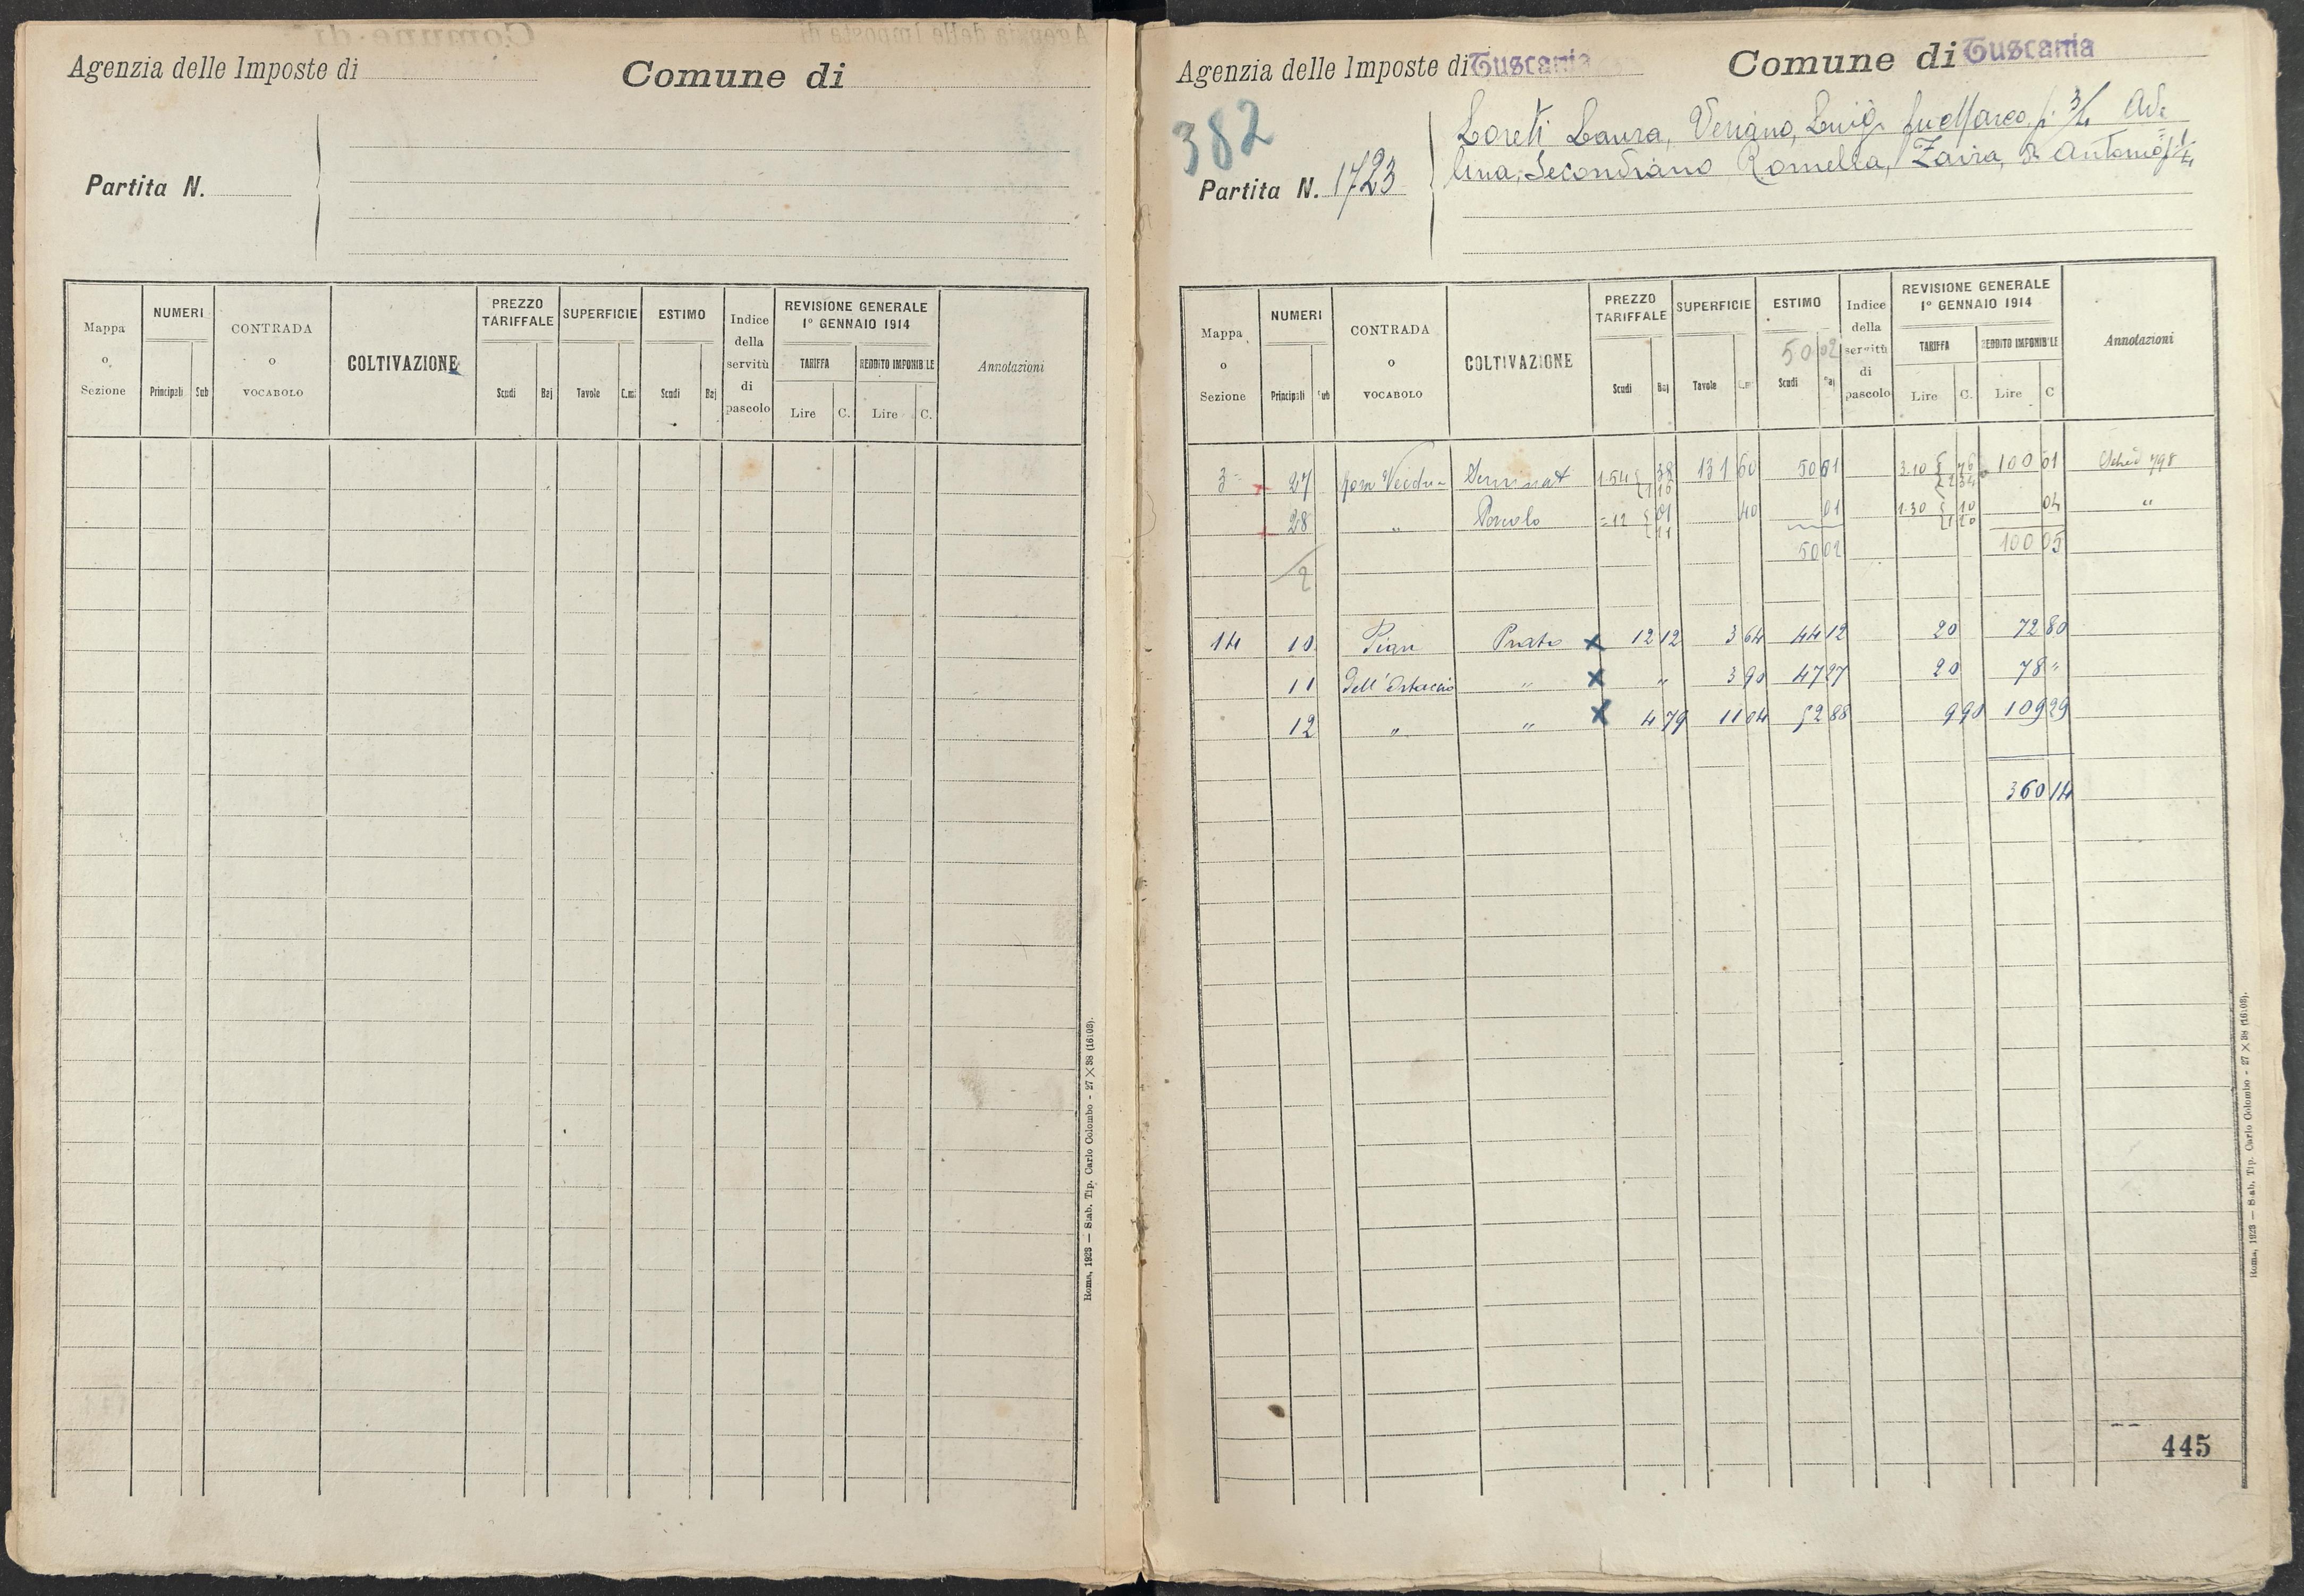 Agenzia delle Imposte di
Comune di
Partita N.
Mappa o Sezione
NUMERI
Principali Sub
CONTRADA o VOCABOLO
COLTIVAZIONE
PREZZO TARIFFALE
Scudi Baj
SUPERFICIE
Tavole C.mi
ESTIMO
Scudi Baj
Indice della servitù di pascolo
REVISIONE GENERALE
1° GENNAIO 1914
TARIFFA
Lire C.
REDDITO IMPONIB'LE
Lire C.
Annotazioni
Roma, 1923 — Stab. Tip. Carlo Colombo - 27 X 38 (16103).
Agenzia delle Imposte di Tuscania
Comune di Tuscania
382
Partita N. 1723
Loreti Laura, Veriano, Luigi fu Marco p. 3/4 Ade
lina, Secondiano Romella, Zaira, di Antonio p 1/4
Mappa o Sezione
NUMERI
Principali Sub
CONTRADA o VOCABOLO
COLTIVAZIONE
PREZZO TARIFFALE
Scudi Baj
SUPERFICIE
Tavole C.mi
ESTIMO
50 02
Scudi Baj
Indice della servitù di pascolo
REVISIONE GENERALE
1° GENNAIO 1914
TARIFFA
Lire C.
REDDITO IMPONIB'LE
Lire C
Annotazioni
3 27 Seminat 1.54 38 1 16 131 60 50 01 3.10 76 2 34 100 01 798
28 " Pascolo = 12 01 11 40 01 1.30 10 1 20 04 "
50 02 100 05
2
14 10 Pian Prato x 12 12 3 64 44 12 20 72 80
11 dell' " x " 3 90 47 27 20 78 "
12 " " x 4 79 11 04 52 88 9 90 109 29
360 14
445
Roma, 1923 — Stab. Tip. Carlo Colombo - 27 X 38 (16108).